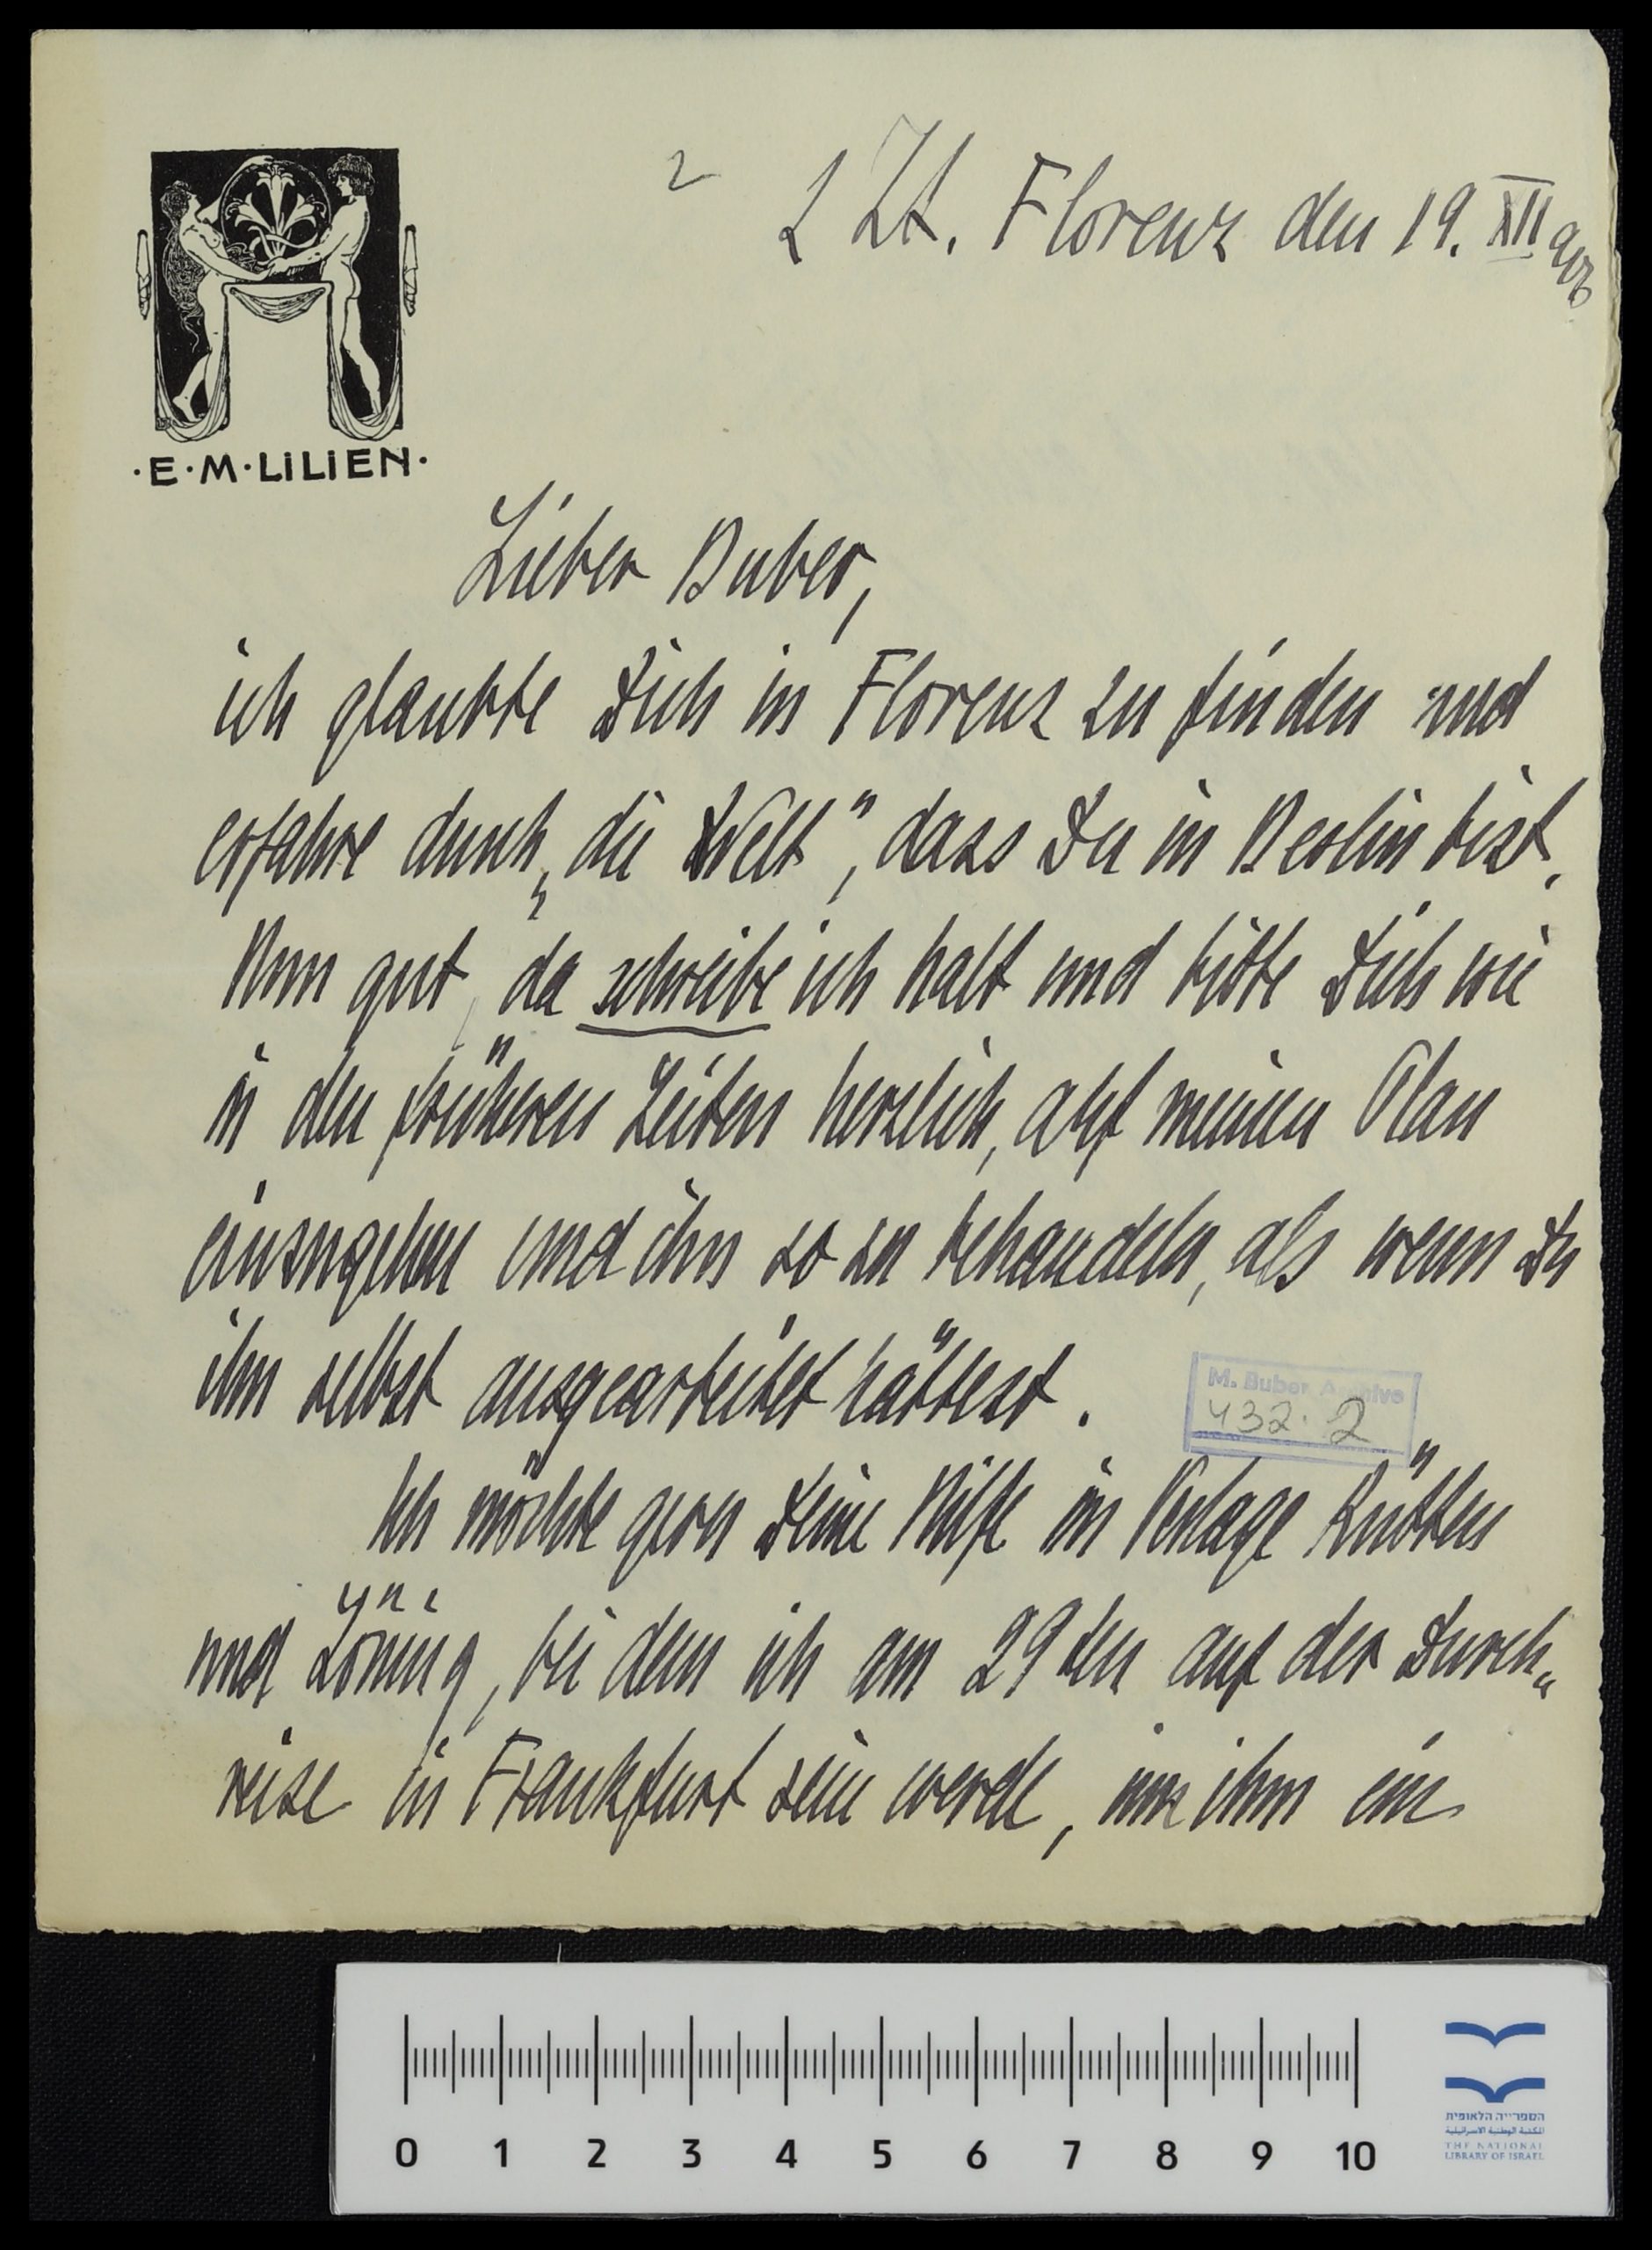 2
z Zt. Florenz den 19. XII
·E·M·LiLiEN·
Lieber Buber,
ich glaubte Dich in Florenz zu finden und
erfahre durch „die Welt", dass Du in Berlin bist.
Nun gut, da schreibe ich halt und bitte Dich wie
in den früheren Zeiten herzlich, auf meinen Plan
einzugehen und ihn so zu behandeln, als wenn Du
ihn selbst ausgearbeitet hättest.
M. Buber Archive
432.2
Ich möchte gern Deine Hilfe im Verlage Rütten
und Löning, bei dem ich am 29ten auf der Durch„
reise in Frankfurt sein werde, um ihm ein
0 1 2 3 4 5 6 7 8 9 10
הספרייה הלאומית
المكتبة الوطنية الاسرائيلية
THE NATIONAL
LIBRARY OF ISRAEL